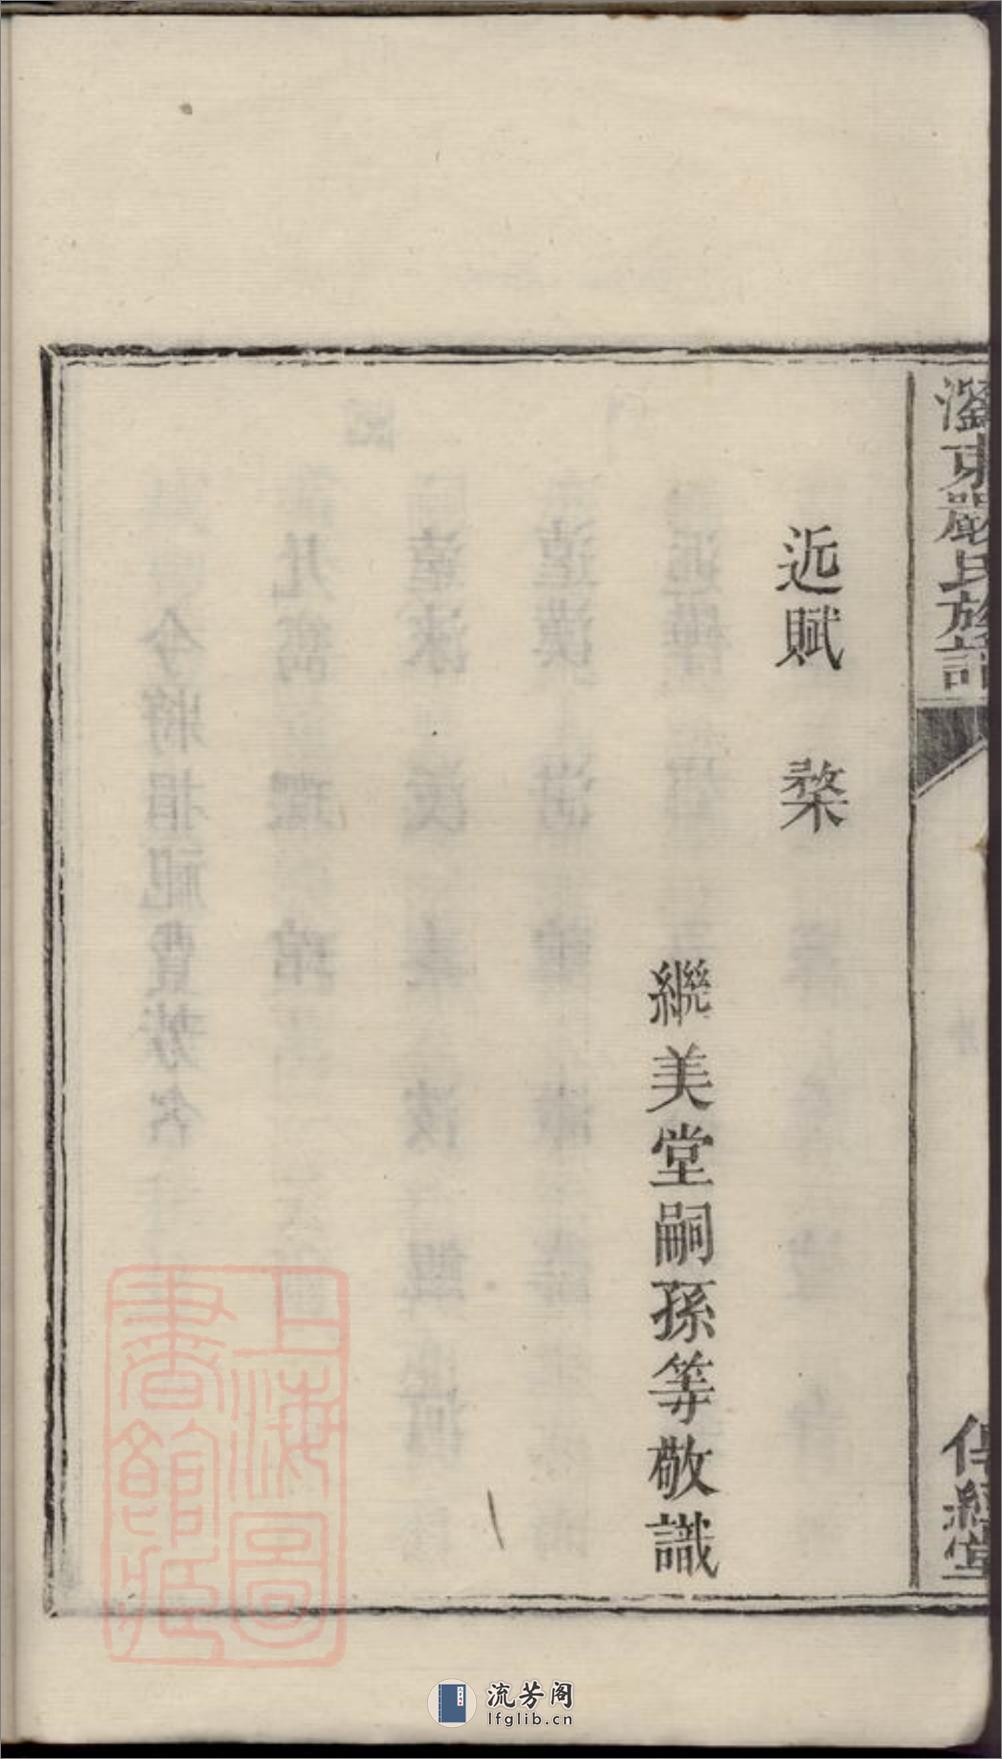 瀏東嚴氏族譜
傳經堂
近賦 棨
繼美堂嗣孫等敬識
上海圖書館藏
流芳阁
lfglib.cn